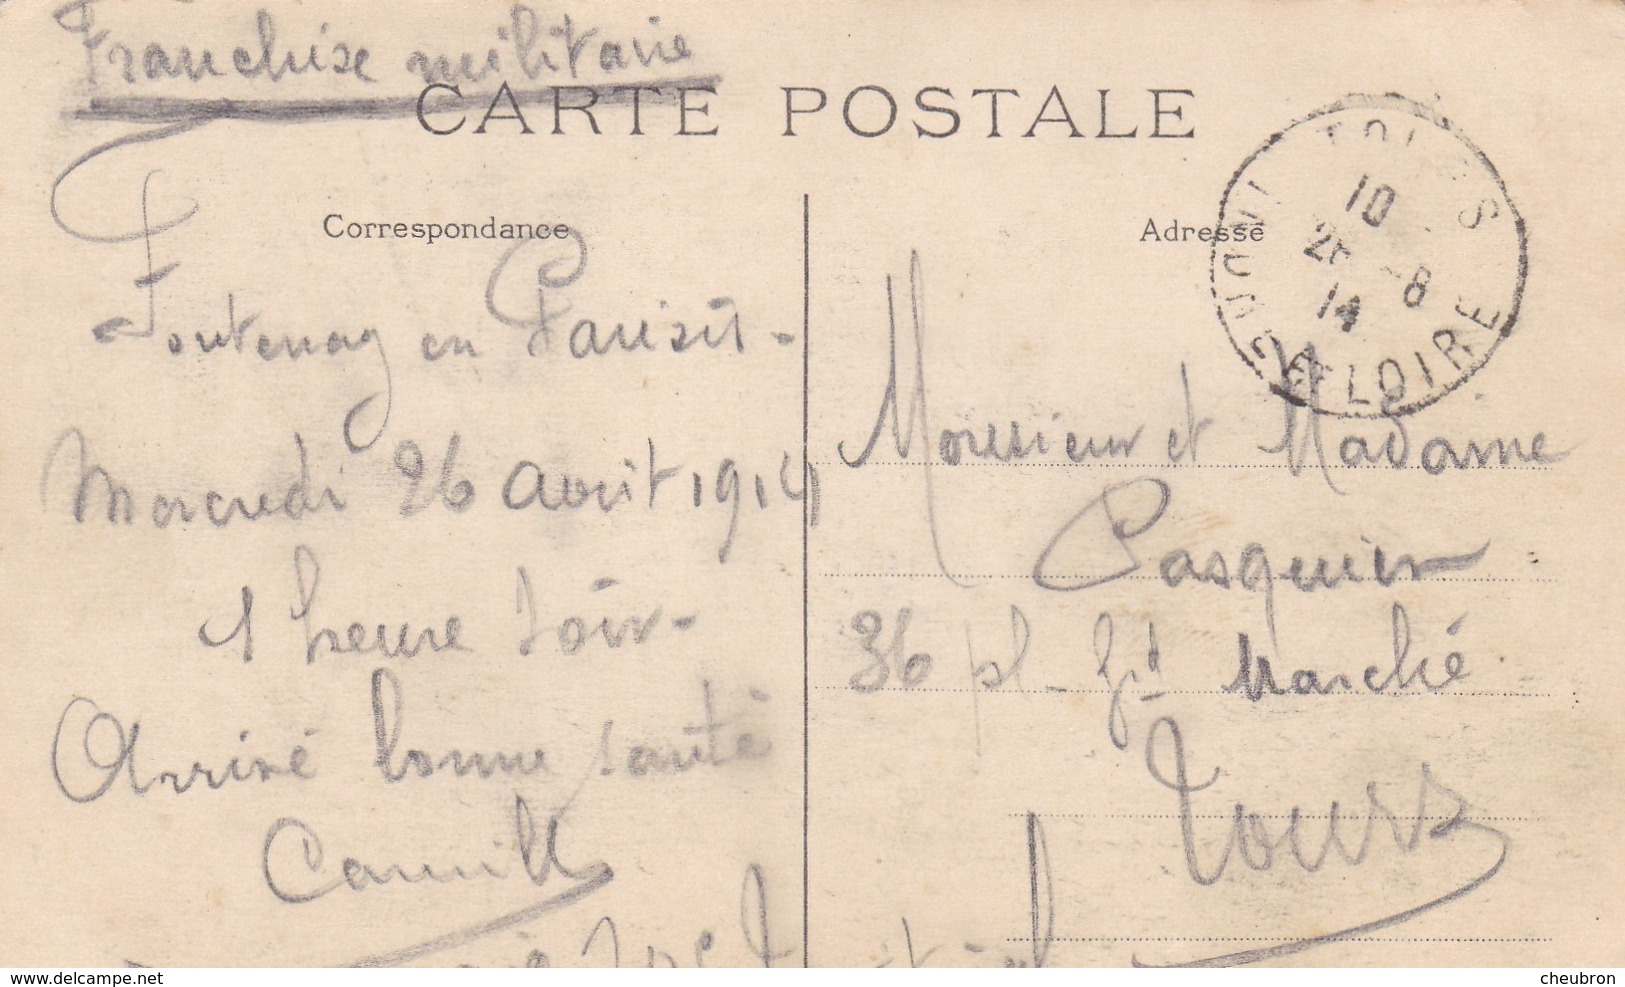 Franchise militaire
CARTE POSTALE
Correspondance
Fontenay en Parisis -
Mercredi 26 août 1914
1 heure soir -
Arrivé bonne santé
Camille
Adresse
Monsieur et Madame
Pasquier
36 pl. Gd Marché
Tours
TOURS
10
8
14
INDRE ET LOIRE
www.delcampe.net
cheubron